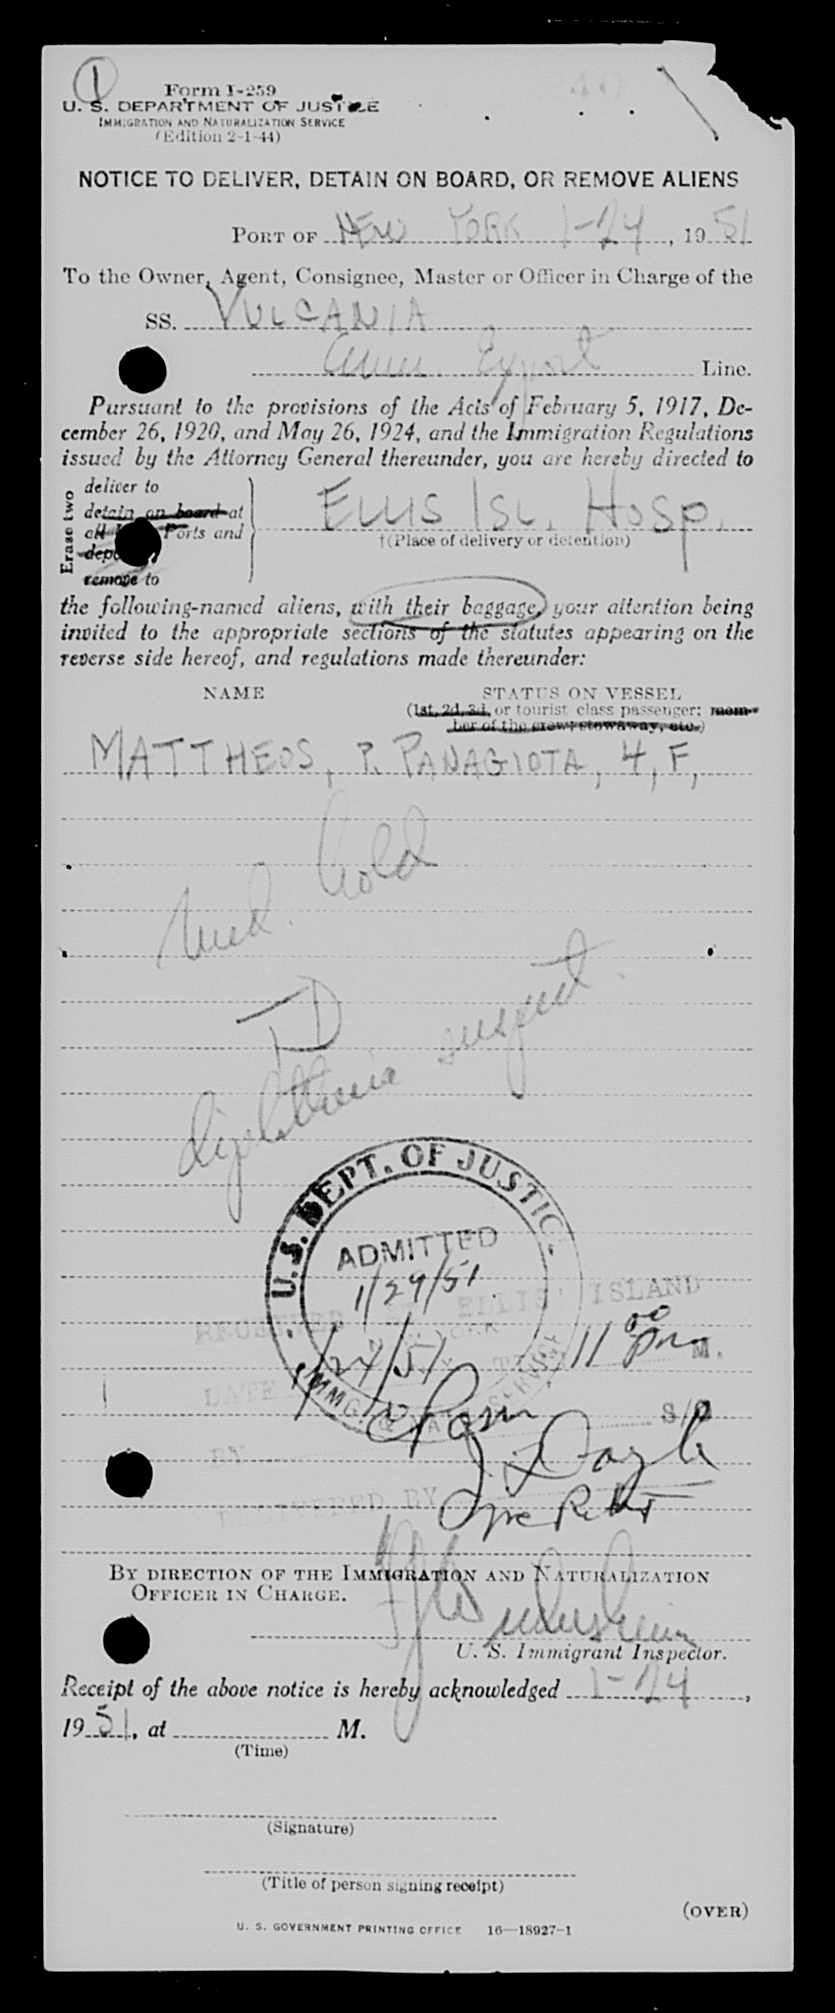 1
Form I-259
U. S. DEPARTMENT OF JUSTICE
IMMIGRATION AND NATURALIZATION SERVICE
(Edition 2-1-44)
NOTICE TO DELIVER, DETAIN ON BOARD, OR REMOVE ALIENS
PORT OF NEW YORK 1-24, 1951
To the Owner, Agent, Consignee, Master or Officer in Charge of the
SS. VULCANIA
Amer. Export Line.
Pursuant to the provisions of the Acts of February 5, 1917, De-
cember 26, 1920, and May 26, 1924, and the Immigration Regulations
issued by the Attorney General thereunder, you are hereby directed to
Erase two
deliver to
detain on board at
Ports and
remove to
ELLIS ISL. HOSP.
†(Place of delivery or detention)
the following-named aliens, with their baggage, your attention being
invited to the appropriate sections of the statutes appearing on the
reverse side hereof, and regulations made thereunder:
NAME STATUS ON VESSEL
(1st, 2d, 3d, or tourist class passenger; mem-
ber of the crew; stowaway, etc.)
MATTHEOS, P. PANAGIOTA, 4, F,
Med. Hold
D
diphtheria suspect.
U.S. DEPT. OF JUSTICE
ADMITTED
1/29/51
RECEIVED ELLIS ISLAND
1/24/51 11 00 pm M.
DATE
BY
DELIVERED BY
BY DIRECTION OF THE IMMIGRATION AND NATURALIZATION
OFFICER IN CHARGE.
U. S. Immigrant Inspector.
Receipt of the above notice is hereby acknowledged 1-24,
1951, at M.
(Time)
(Signature)
(Title of person signing receipt)
(OVER)
U. S. GOVERNMENT PRINTING OFFICE 16—18927-1